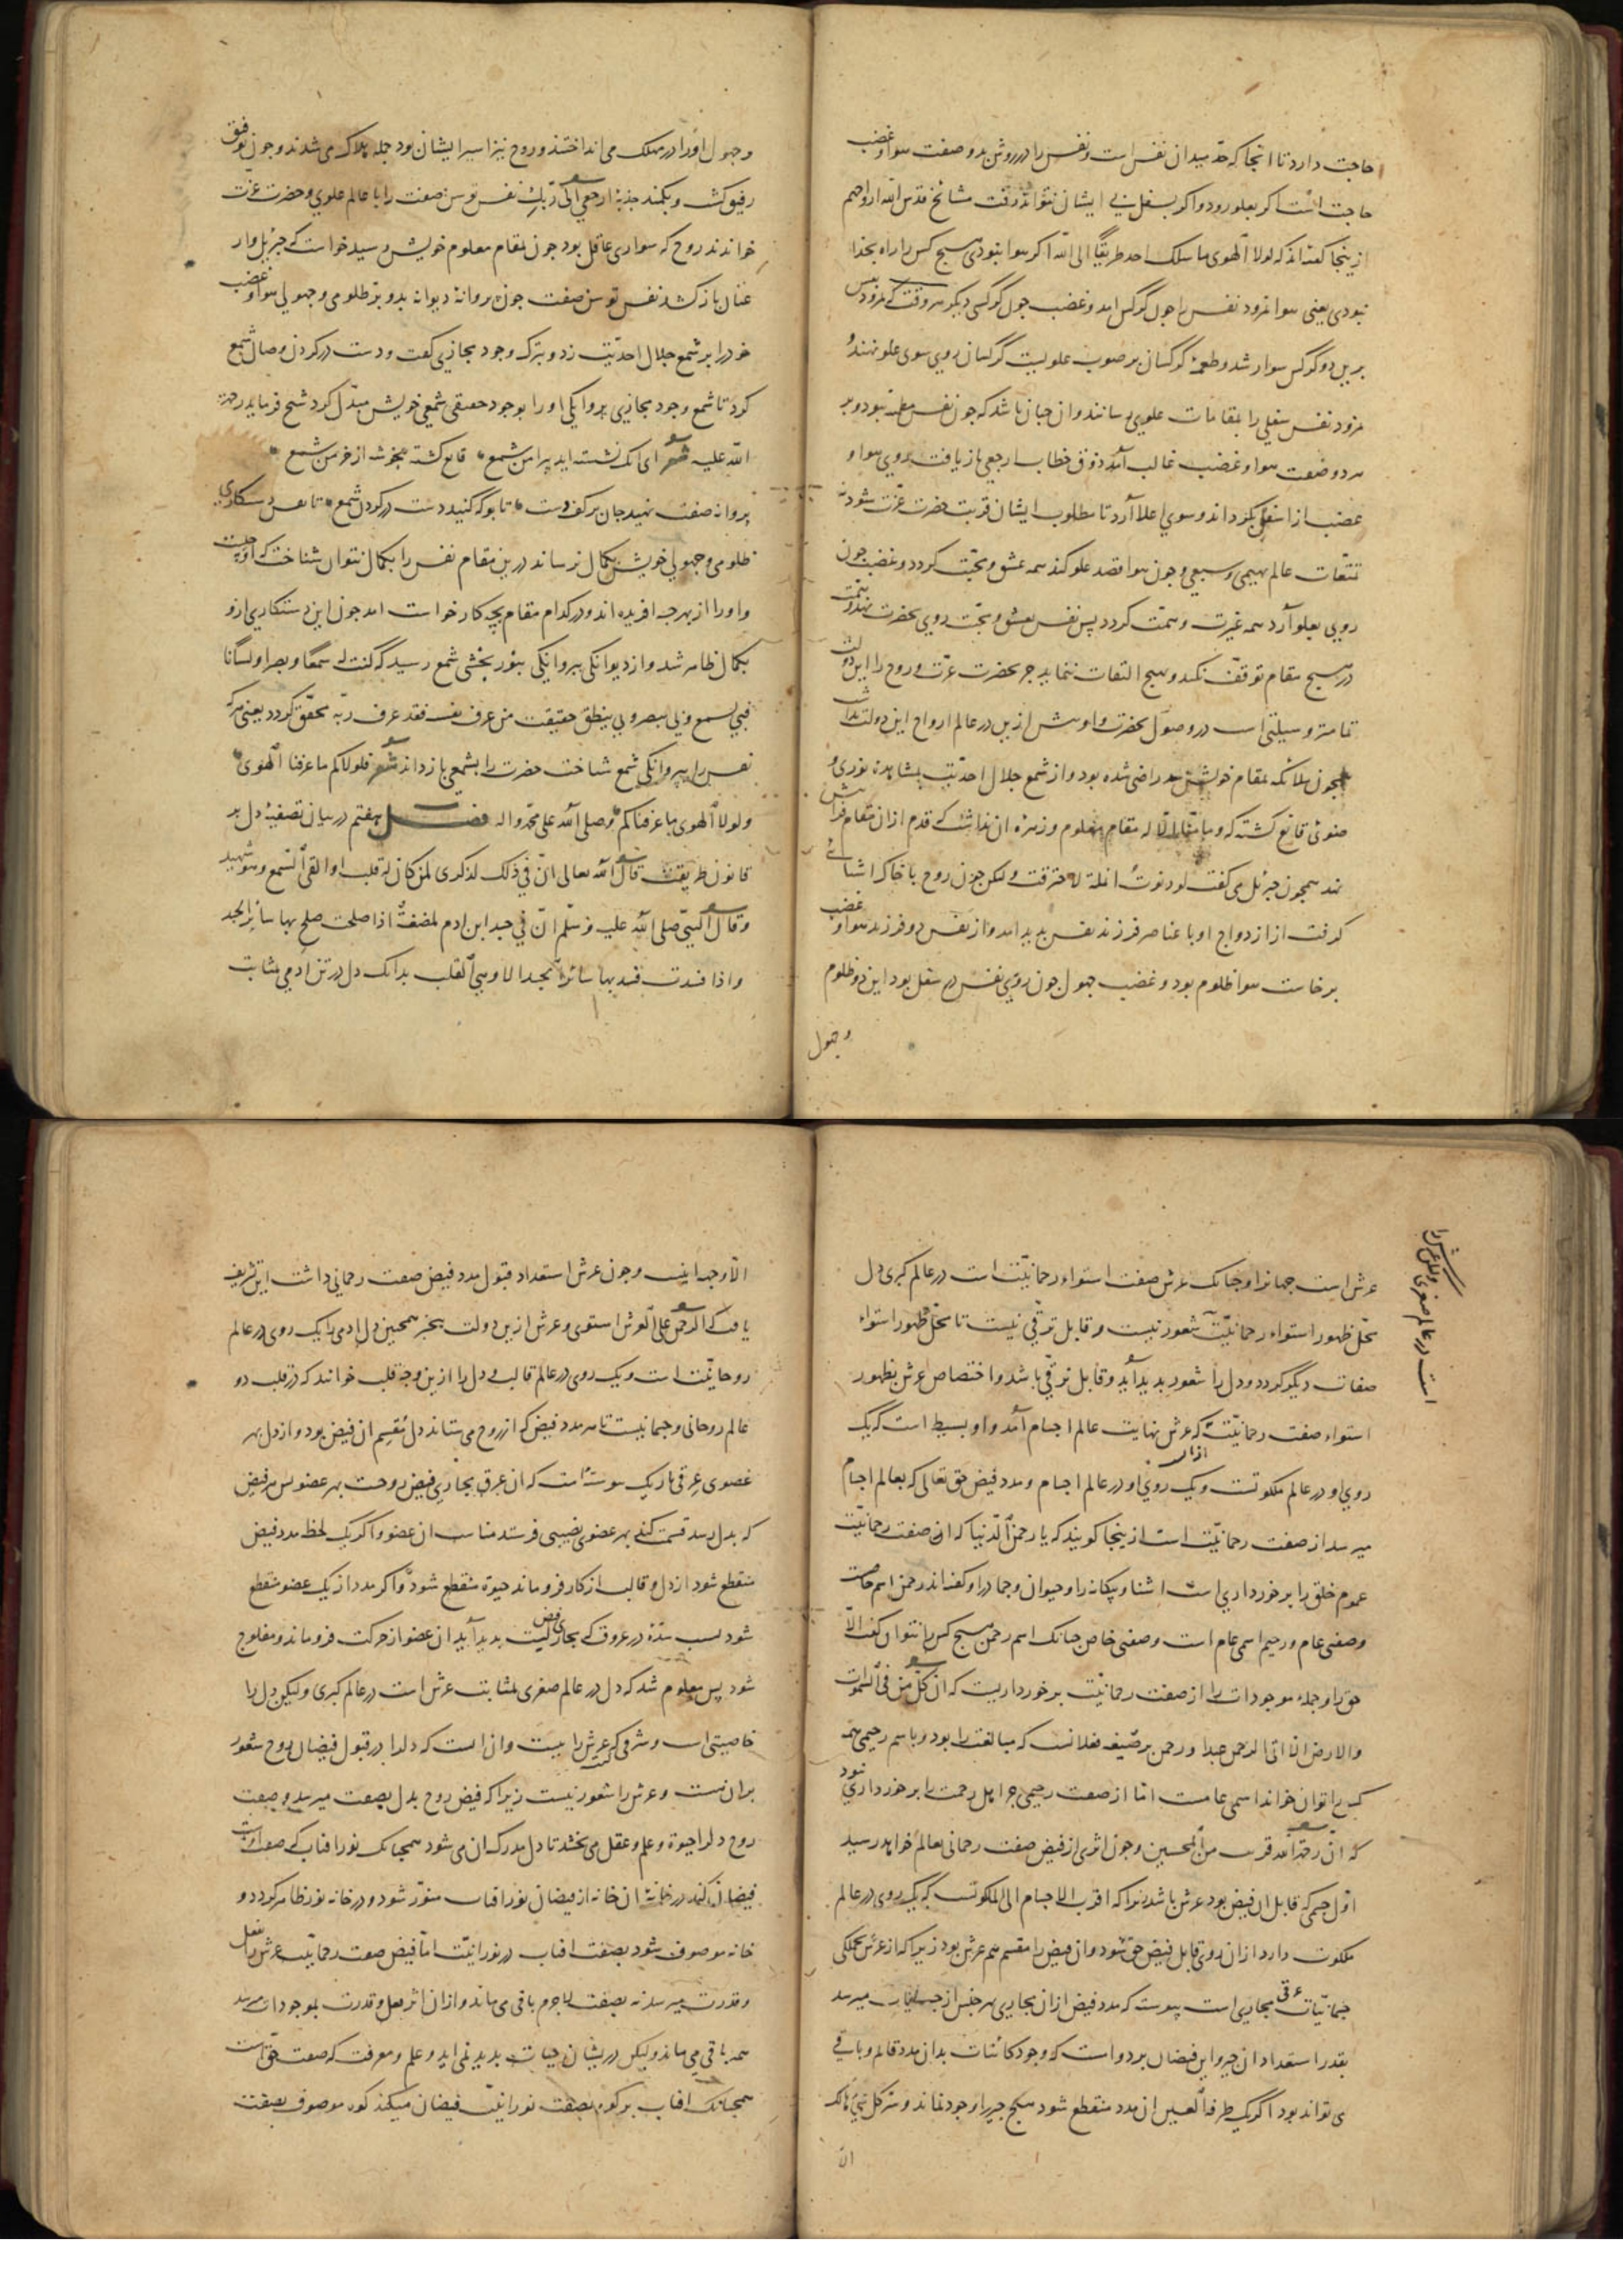 حاجت دارد تا انجا که حد میدان نفس است و نفس را در روش بدو صفت هوا و غضب
حاجت است اکر بعلو رود و اکر بسفل بی ایشان نتواند رفت مشایخ قدس الله ارواحهم
ازینجا کفته اند که لولا الهوی ما سلک احد طریقا الی الله اکر هوا نبودی هیچ کس را راه بخدا
نبودی یعنی هوا نمرود نفس را چون کرکس امد و غضب چون کرکسی دیکر هر وقت که نمرود نفس
برین دو کرکس سوار شد و طعمۀ کرکسان بر صوب علو بست کرکسان روی سوی علو نهند و
نمرود نفس سفلی را بمقامات علوی رسانند و ان چنان باشد که چون نفس مطمئنه بود و بر
هر دو صفت هوا و غضب غالب آمد و ذوق خطاب ارجعی باز یافت روی هوا و
غضب از اسفل بکرداند و سوی اعلا آرد تا مطلوب ایشان قربت حضرت عزت شود نه
تنعات عالم بهیمی و سبعی و چون هوا قصد علو کند همه عشق و محبت کردد و غضب چون
روی بعلو آرد همه غیرت و همت کردد پس نفس بعشق و محبت روی بحضرت نهد و بهمت
در هیچ مقام توقف نکند و بهیچ التفات ننماید جز بحضرت عزت و روح را این دو الت
تمامتر وسیلتی است در وصول بحضرت و او پیش ازین در عالم ارواح این دو الت نداشت
همچون ملائکه بمقام خویش راضی شده بود و از شمع جلال احدیت بمشاهدۀ نوری و
ضوئی قانع کشته که و ما منا الا له مقام معلوم و زهرۀ ان نداشت که قدم از ان مقام فراتر
نهد همچون جبرئل می کفت لو دنوت انملة لاحترقت ولکن چون روح با خاک اشنائی
کرفت از ازدواج او با عناصر فرزند نفس بدید امد و از نفس دو فرزند هوا و غضب
برخاست هوا ظلوم بود و غضب جهول چون روی نفس در سفل بود این دو ظلوم
وجهول
وجهول او را در مهلک می انداختند و روح نیز اسیر ایشان بود جمله هلاک می شدند و چون توفیق
رفیق کشت و بکمند جذبۀ ارجعی الی ربک نفس توسن صفت را با عالم علوی و حضرت عزت
خواندند روح که سواری عاقل بود چون بمقام معلوم خویش رسید خواست که جبرئل وار
عنان باز کشد نفس توسن صفت چون پروانۀ دیوانه بدو پر ظلومی و جهولی هوا و غضب
خود را بر شمع جلال احدیت زد و بترک وجود مجازی کفت و دست در کردن وصال شمع
کرد تا شمع وجود مجازی پروانکی او را بوجود حقیقی شمعی خویش مبدل کرد شیخ فرماید رحمة
الله علیه شعر ای انک نشسته اید پیرامن شمع قانع کشته بخوشۀ از خرمن شمع
پروانه صفت نهید جان بر کف دست تا بو که کنید دست در کردن شمع تا نفس دستکاری
ظلومی و جهولی خویش بکمال نرساند درین مقام نفس را بکمال نتوان شناخت که او چیست
و او را از بهر چه افریده اند و در کدام مقام بچه کار خواست امد چون این دستکاری ازو
بکمال ظاهر شد و از دیوانکی پروانکی بنور بخشی شمع رسید که کنت له سمعا و بصرا و لسانا
فبی یسمع و بی یبصر و بی ینطق حقیقت من عرف نفسه فقد عرف ربه محقق کردد یعنی هر که
نفس را بپروانکی شمع شناخت حضرت را بشمعی باز داند شعر فلولاکم ما عرفنا الهوی
ولولا الهوی ما عرفناکم وصلی الله علی محمد واله فصل هفتم در بیان تصفیۀ دل بر
قانون طریقت قال الله تعالی ان فی ذلک لذکری لمن کان له قلب او القی السمع وهو شهید
وقال النبی صلی الله علیه وسلم ان فی جسد ابن ادم لمضغة اذا صلحت صلح بها سائر الجسد
واذا فسدت فسد بها سائر الجسد الا وهی القلب بدانک دل در تن ادمی بمثابت
عرش است جهانرا و چنانک عرش صفت استواء رحمانیت است در عالم کبری دل
است در عالم صغری ولکن عرش را
محل ظهور استواء رحمانیت شعور نیست و قابل ترقی نیست تا محل ظهور استواء
صفات دیکر کردد و دل را شعور بدید آید و قابل ترقی باشد و اختصاص عرش بظهور
استواء صفت رحمانیت که عرش نهایت عالم اجسام آمد و او بسیط است که یک
روی او در عالم ملکوتست و یک روی او در عالم اجسام و مدد فیض حق تعالی که بعالم اجسام
میرسد از صفت رحمانیت است ازینجا کویند که یا رحمن الدنیا که ان صفت رحمانیت
عموم خلق را برخورداری است اشنا و بیکانه را و حیوان و جماد را و کفته اند رحمن اسم خاص است
و صفتی عام و رحیم اسمی عام است و صفتی خاص چنانک اسم رحمن هیچ کس را نتوان کفت الا
حق را و جمله موجودات را از صفت رحمانیت برخورداریست که ان کل من فی السموات
والارض الا اتی الرحمن عبدا و رحمن بر صیغۀ فعلانست که مبالغت را بود و باسم رحیمی همه
کس را توان خواند اسمی عامست اما از صفت رحیمی جز اهل رحمت را برخورداری نبود
که ان رحمة الله قریب من المحسنین و چون اثری از فیض صفت رحمانی بعالم خواهد رسید
اول جسمی که قابل ان فیض بود عرش باشد زیرا که اقرب الاجسام الی الملکوتست که یک روی در عالم
ملکوت دارد از ان روی قابل فیض حق شود و ان فیض را مقسم هم عرش بود زیرا که از عرش بجملکی
جسمانیات عرقی مجاری است پیوسته که مدد فیض از ان مجاری بهر جنس از جسمانیات میرسد
بقدر استعداد ان چیز و این فیضان بر دوام است که وجود کائنات بدان مدد قائم و باقی
می تواند بود اکر یک طرفة العین ان مدد منقطع شود هیچ چیز را وجود نماند و سر کل شیء هالک
الا
الا وجهه اینست و چون عرش استعداد قبول مدد فیض صفت رحمانی داشت این تشریف
یافت که الرحمن علی العرش استوی و عرش ازین دولت بیخبر همچنین دل ادمی را یک روی در عالم
روحانیت است و یک روی در عالم قالب و دل را ازین وجه قلب خوانند که در قلب دو
عالم روحانی و جسمانیست تا هر مدد فیض که از روح می ستاند دل مقسم ان فیض بود و از دل بهر
عضوی عرقی باریک پیوسته است که ان عرق مجاری فیض روحست بهر عضو پس هر فیض
که بدل رسد قسمت کند بهر عضوی نصیبی فرستد مناسب ان عضو و اکر یک لحظه مدد فیض
منقطع شود از دل و قالب از کار فرو ماند حیوة منقطع شود و اکر مدد از یک عضو منقطع
شود بسبب سدۀ در عروق که مجاری فیض است بدید آید ان عضو از حرکت فرو ماند و مفلوج
شود پس معلوم شد که دل در عالم صغری بمثابت عرش است در عالم کبری ولیکن دل را
خاصیتی است و شرفی که عرش را نیست و ان انست که دلرا در قبول فیضان روح شعور
بران هست و عرش را شعور نیست زیرا که فیض روح بدل بصفت میرسد و صفت
روح دلرا حیوة و علم و عقل می بخشد تا دل مدرک ان می شود همچنانک نور افتاب که صفت اوست
فیضان کند در خانۀ ان خانه از فیضان نور افتاب منور شود و در خانه نور ظاهر کردد و
خانه موصوف شود بصفت افتاب در نورانیت اما فیض صفت رحمانیت عرش را بفعل
و قدرت میرسد نه بصفت لاجرم باقی می ماند و از ان اثر فعل و قدرت بموجودات میرسد
همه باقی می ماند ولیکن دریشان حیات بدید نمی اید و علم و معرفت که صفت حق است
همچنانک افتاب بر کوه بصفت نورانیت فیضان میکند کوه موصوف بصفت